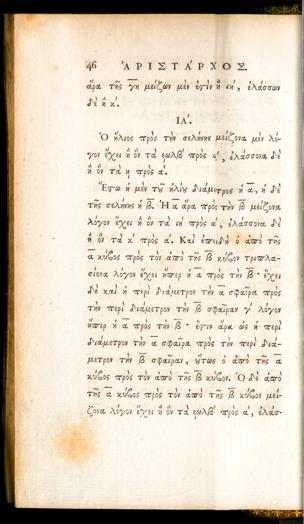 46 ἈΡΙΣΤΑΡΧΟΣ.
ἄρα τῆς γη μείζων μὲν ἐστὶν ἢ ιη', ἐλάσσων
δὲ ἢ κ'.
ΙΑ'.
Ὁ ἥλιος πρὸς τὴν σελήνην μείζονα μὲν λό-
γον ἔχει ἢ ὃν τὰ εωλβ' πρὸς α', ἐλάσσονα δὲ
ἢ ὃν τὰ η πρὸς α'.
Ἔστω ἡ μὲν τοῦ ἡλίου διάμετρος ἡ α, ἡ δὲ
τῆς σελήνης ἡ β. Ἡ α ἄρα πρὸς τὴν β μείζονα
λόγον ἔχει ἢ ὃν τὰ ιη πρὸς α', ἐλάσσονα δὲ
ἢ ὃν τὰ κ' πρὸς α'. Καὶ ἐπειδὴ ὁ ἀπὸ τῆς
α κύβος πρὸς τὸν ἀπὸ τῆς β κύβον τριπλα-
σίονα λόγον ἔχει ἤπερ ἡ α πρὸς τὴν β· ἔχει
δὲ καὶ ἡ περὶ διάμετρον τὴν α σφαῖρα πρὸς
τὴν περὶ διάμετρον τὴν β σφαῖραν γ' λόγον
ἤπερ ἡ α πρὸς τὴν β· ἔστιν ἄρα ὡς ἡ περὶ
διάμετρον τὴν α σφαῖρα πρὸς τὴν περὶ διά-
μετρον τὴν β σφαῖραν, οὕτως ὁ ἀπὸ τῆς α
κύβος πρὸς τὸν ἀπὸ τῆς β κύβον. Ὁ δὲ ἀπὸ
τῆς α κύβος πρὸς τὸν ἀπὸ τῆς β κύβον μεί-
ζονα λόγον ἔχει ἢ ὃν τὰ εωλβ' πρὸς α', ἐλάσ-